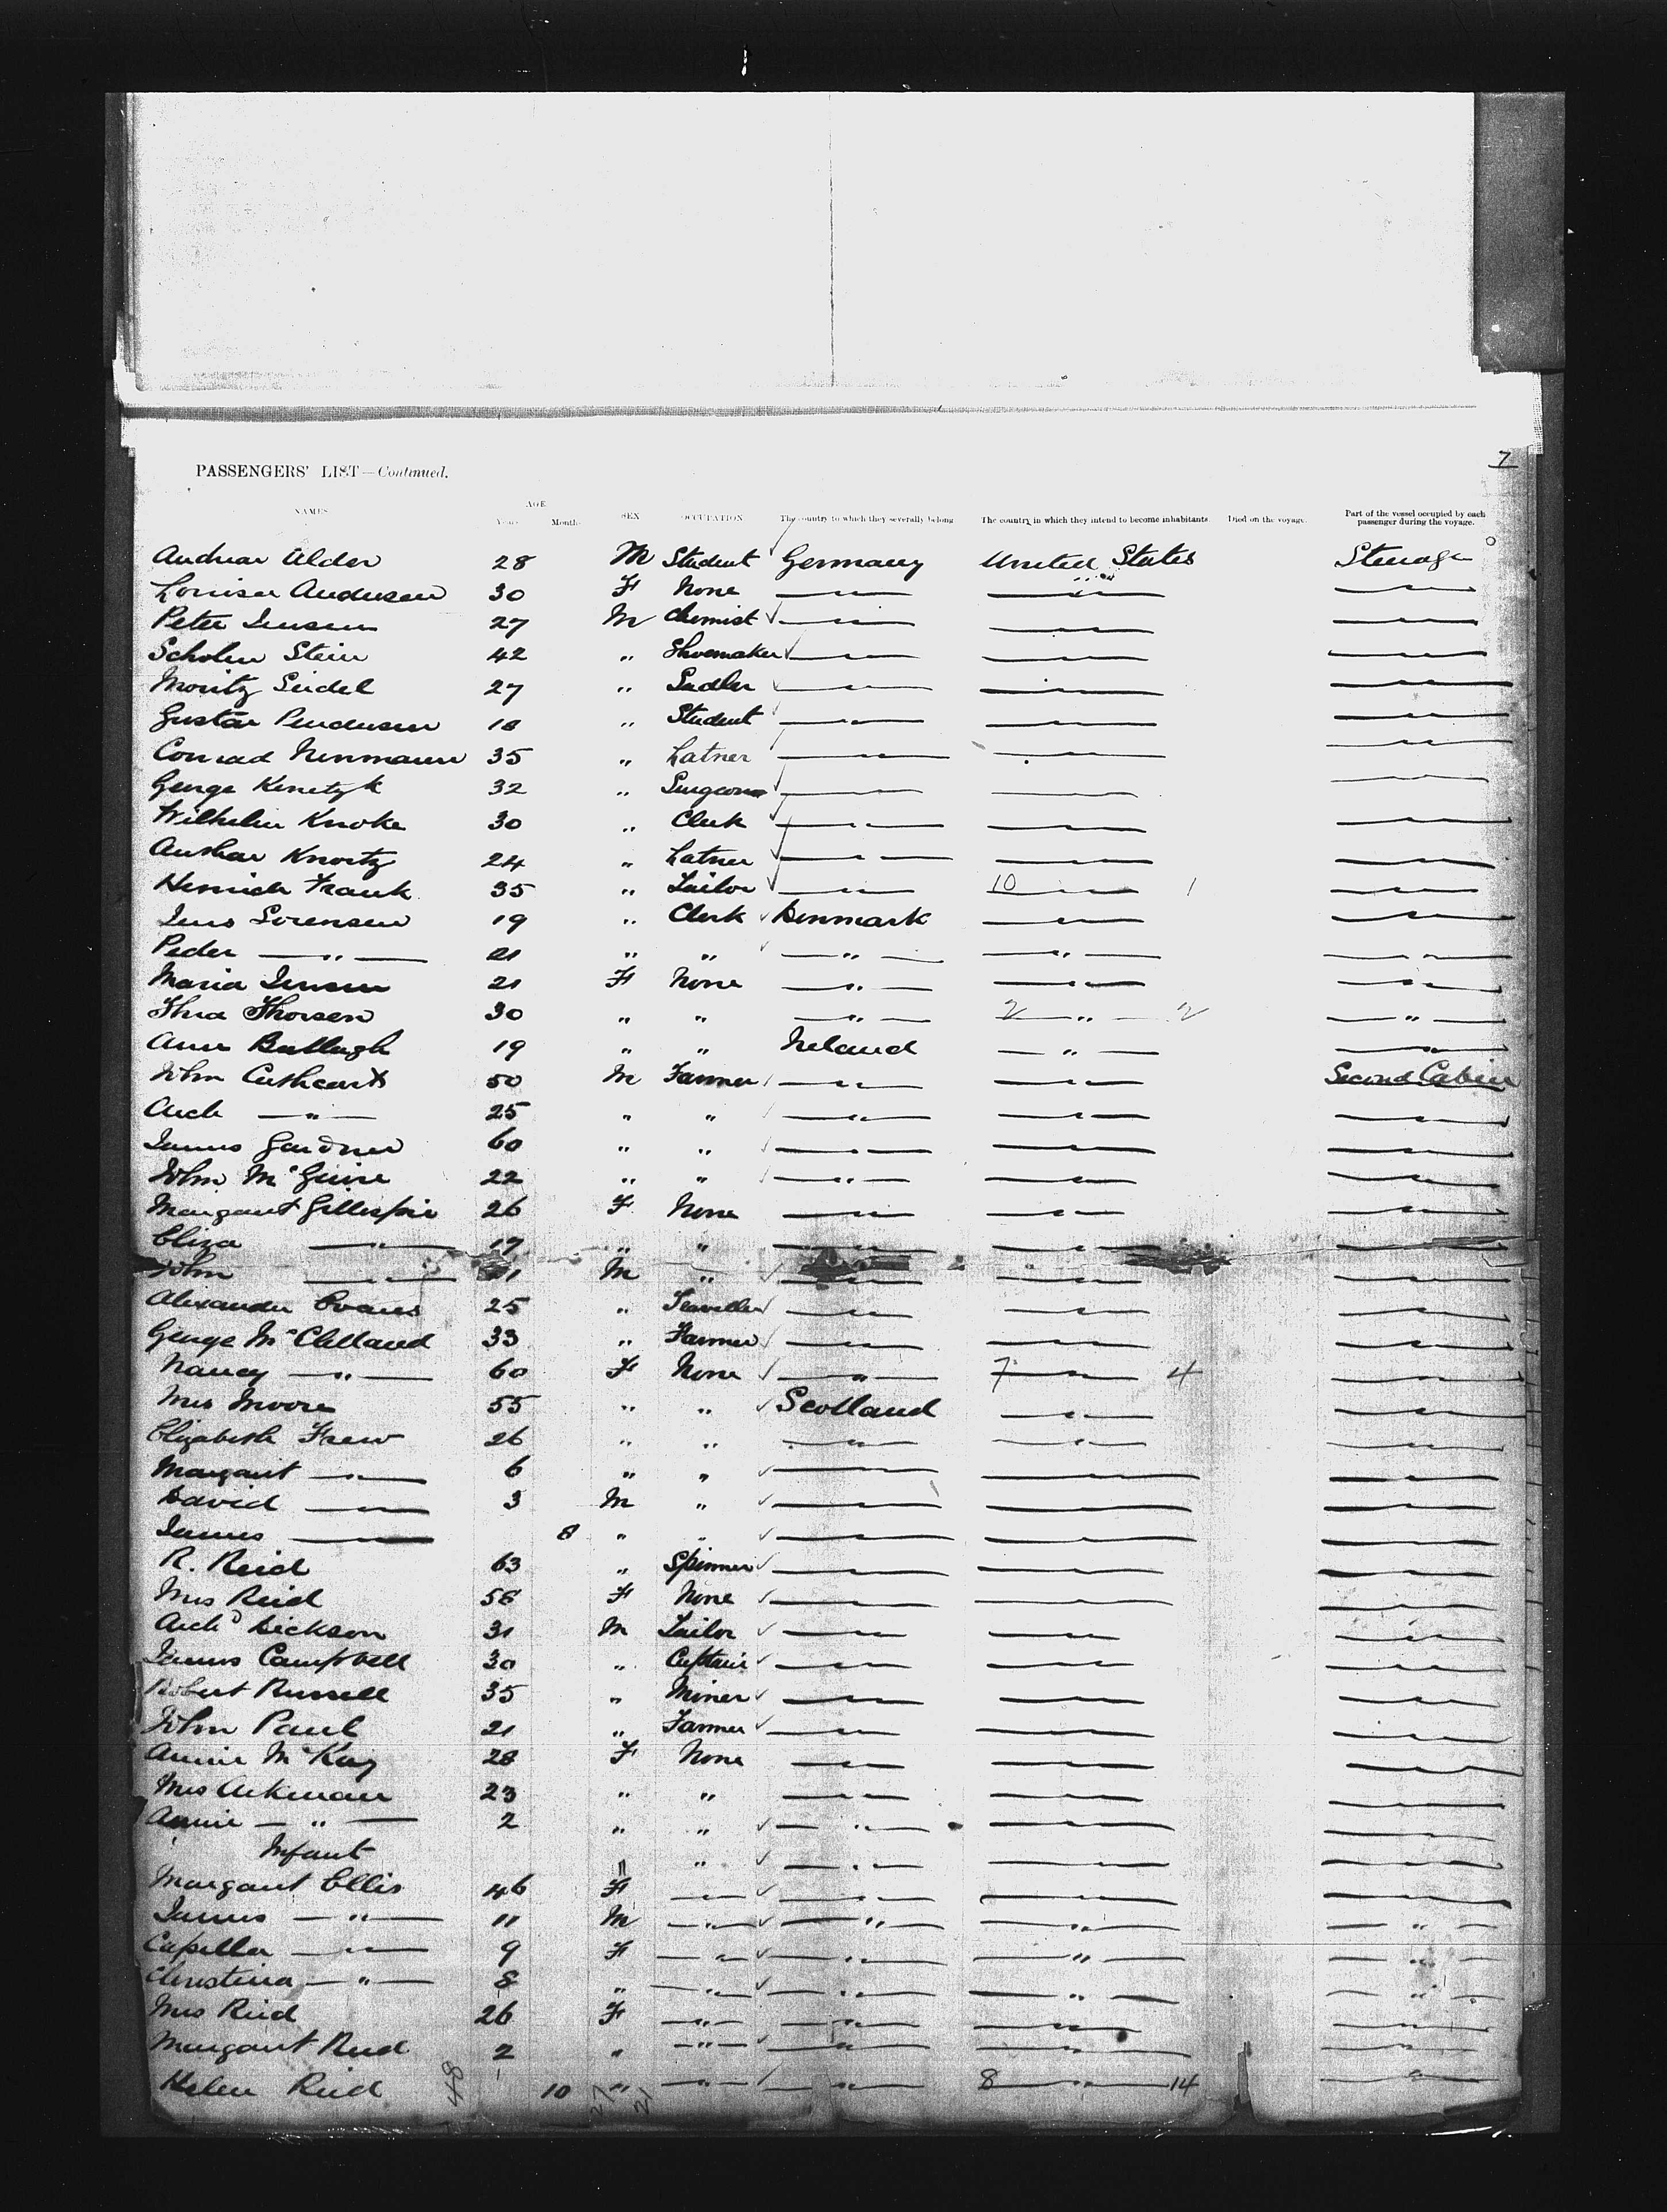 7
PASSENGERS' LIST—Continued.
NAMES AGE Years Months SEX OCCUPATION The country to which they severally belong The country in which they intend to become inhabitants Died on the voyage. Part of the vessel occupied by each passenger during the voyage.
Alder 28 M Student Germany United States Steerage
Louisa Andersen 30 F None — —
Peter Jensen 27 M Chemist — —
Stein 42 " Shoemaker — —
Moritz Seidel 27 " Sadler — —
Gustav 18 " Student — —
Conrad 35 " Latner — —
George 32 " Surgeon — —
Wilhelm Knoke 30 " Clerk — —
Knortz 24 " Latner — —
Heinrich Frank 35 " Tailor — 10 — 1 —
Jens Sorensen 19 " Clerk Denmark — —
Peder — " — 21 " " — " — — " — — " —
Maria Jensen 21 F None — " — — " — — " —
Thorsen 30 " " — " — 2 — " — 2 — " —
Ann 19 " " Ireland — " — — " —
John Cathcart 50 M Farmer — " — — " — Second Cabin
Arch — " — 25 " " — " — — " — — " —
James Gardner 60 " " — " — — " — — " —
John McGuire 22 " " — " — — " — — " —
Margaret Gillespie 26 F None — " — — " — — " —
Eliza — " — 17 " " — " — — " — — " —
John — " — M " — " — — " — — " —
Alexander Evans 25 " Traveller — " — — " — — " —
George McClelland 33 " Farmer — " — — " — — " —
Nancy — " — 60 F None — " — 7 — " — 4 — " —
Mrs Moore 55 " " Scotland — " — — " —
Elizabeth Frew 26 " " — " — — " — — " —
Margaret — " — 6 " " — — —
David — " — 3 M " — — —
James — 8 " " — — —
R. Reid 63 " Spinner — — —
Mrs Reid 58 F None — — —
Archd Dickson 31 M Tailor — — —
James Campbell 30 " Captain — — —
Robert Russell 35 " Miner — — —
John Paul 21 " Farmer — — —
Annie McKay 28 F None — — —
Mrs 23 " " — — —
Annie — " — 2 " " — " — — —
Infant " " — " — — —
Margaret Ellis 46 F — — — —
James — " — 11 M — " — — " — — " — — " —
— " — 9 F — " — — " — — " — — " —
Christina — " — 8 " — " — — " — — " — — " —
Mrs Reid 26 F — " — — " — — " — — " —
Margaret Reid 2 " — " — — " — — " — — " —
Helen Reid 10 " — " — — " — 8 — " — 14 — " —
48 27 21